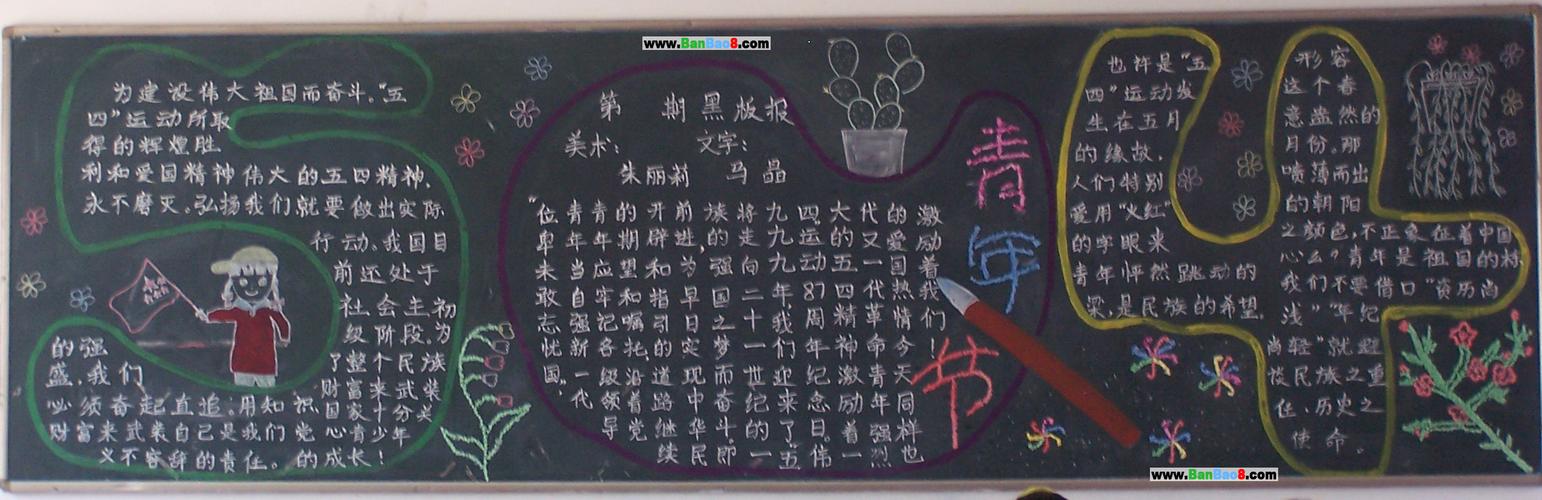 为建设伟大祖国而奋斗。“五
四”运动所取
得的辉煌胜
利和爱国精神伟大的五四精神、
永不磨灭。弘扬我们就要做出实际
行动。我国目
前还处于
社会主初
级阶段。为
了整个民族
的强
盛,我们
财富来武装
必须奋起直追。用知识
国家十分关
财富来武装自己是我们党
心青少年
义不容辞的责任。的成长!
第 期黑版报
美术: 文字:
朱丽莉 马晶
“位卑未敢忘忧国”。
青年当自强新一代
青年应牢记各级领导
的期望和嘱托沿着党
开辟和指引的道路继续
前进,为早日实现中华民
族的强国之梦而奋斗.即
将走向二十一世纪的一
九九九年,我们迎来了五
四运动87周年纪念日。伟
大的五四精神激励着一
代又一代革命青年强烈
的爱国热情今天同样也
激励着我们!
青年节
也许是“五
四”运动发
生在五月
的缘故,
人们特别
爱用“火红”
的字眼来
形容
这个春
意盎然的
月份。那
喷薄而出
的朝阳
之颜色,不正象征着中国
青年怦然跳动的
心么?青年是祖国的栋
梁,是民族的希望,
我们不要借口“资历尚
浅”“年纪
尚轻”就逃
民族之重
任、历史之
使命。
www.BanBao8.com
www.BanBao8.com